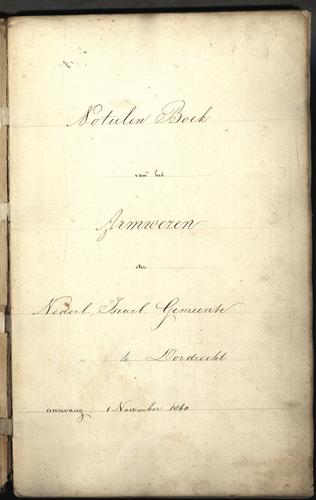 Notulen Boek
van het
Armwezen
der
Nederl. Israel. Gemeente
te Dordrecht
aanvang 1 November 1860